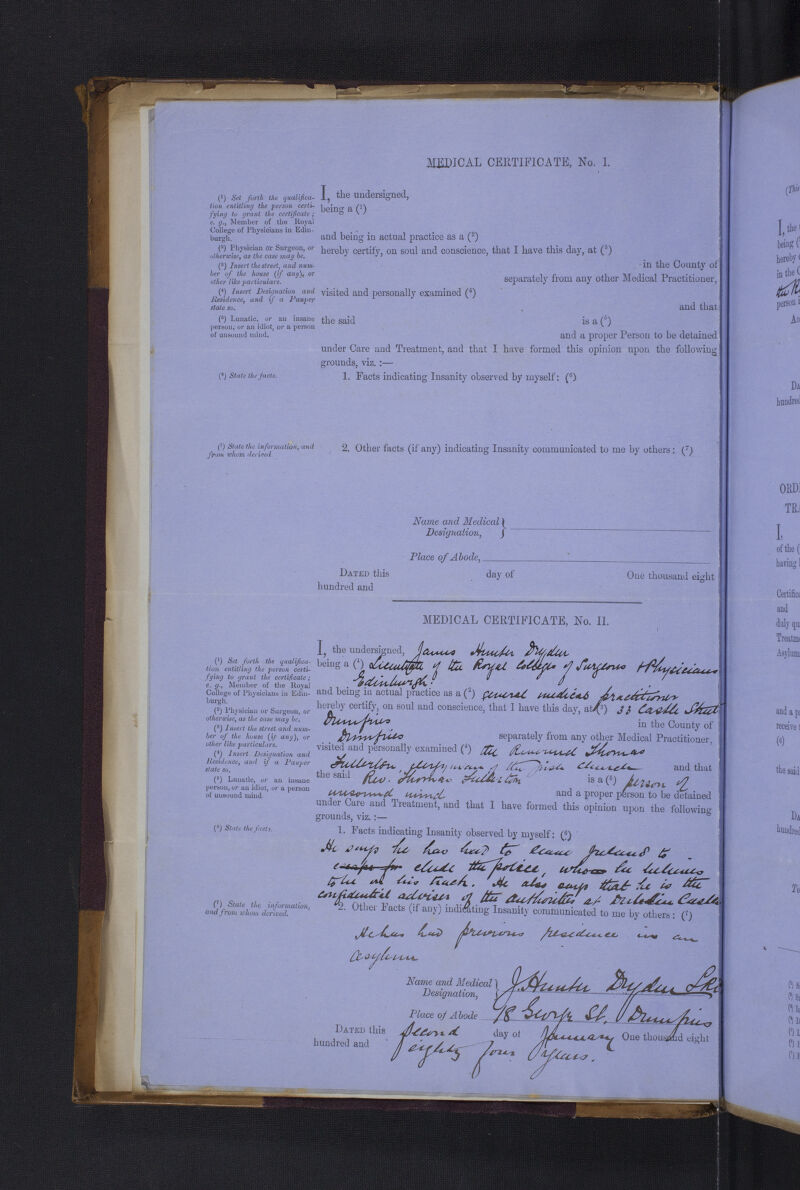 MEDICAL CERTIFICATE, No. I.
(¹) Set forth the qualifica-
tion entitling the person certi-
fying to grant the certificate;
e. g., Member of the Royal
College of Physicians in Edin-
burgh.
(²) Physician or Surgeon, or
otherwise, as the case may be.
(³) Insert the street, and num-
ber of the house (if any), or
other like particulars.
(⁴) Insert Designation and
Residence, and if a Pauper
state so.
(⁵) Lunatic, or an insane
person, or an idiot, or a person
of unsound mind.
I, the undersigned,
being a (¹)
and being in actual practice as a (²)
hereby certify, on soul and conscience, that I have this day, at (³)
in the County of
separately from any other Medical Practitioner,
visited and personally examined (⁴)
and that
the said is a (⁵)
and a proper Person to be detained
under Care and Treatment, and that I have formed this opinion upon the following
grounds, viz. :—
(⁶) State the facts.
1. Facts indicating Insanity observed by myself: (⁶)
(⁷) State the information, and
from whom derived.
2. Other facts (if any) indicating Insanity communicated to me by others: (⁷)
Name and Medical
Designation,
Place of Abode,
DATED this day of One thousand eight
hundred and
MEDICAL CERTIFICATE, No. II.
(¹) Set forth the qualifica-
tion entitling the person certi-
fying to grant the certificate;
e. g., Member of the Royal
College of Physicians in Edin-
burgh.
(²) Physician or Surgeon, or
otherwise, as the case may be.
(³) Insert the street and num-
ber of the house (if any), or
other like particulars.
(⁴) Insert Designation and
Residence, and if a Pauper
state so.
(⁵) Lunatic, or an insane
person, or an idiot, or a person
of unsound mind
I, the undersigned, James Hunter Dryden
being a (¹) Licentiate of the Royal Colleges of Surgeons & Physicians
Edinburgh
and being in actual practice as a (²) general medical practitioner
hereby certify, on soul and conscience, that I have this day, at (³) 33 Castle Street
Dumfries in the County of
Dumfries separately from any other Medical Practitioner,
visited and personally examined (⁴) the Reverend Thomas
Fullerton, clergyman of the Irish Church and that
the said Rev. Thomas Fullerton is a (⁵) person of
unsound mind and a proper person to be detained
under Care and Treatment, and that I have formed this opinion upon the following
grounds, viz. :—
(⁶) State the facts.
1. Facts indicating Insanity observed by myself: (⁶)
He says he has had to leave Ireland to
elude the police, who he believes
to be on his track. He also says that he is the
confidential adviser of the authorities at Dublin Castle
(⁷) State the information,
and from whom derived.
2. Other Facts (if any) indicating Insanity communicated to me by others: (⁷)
He has had previous residence in an
asylum
Name and Medical
Designation, J. Hunter Dryden
Place of Abode 98 George St. Dumfries
DATED this second day of January One thousand eight
hundred and eighty four years.
(This
I, the
being (
hereby c
in the C
person i
An
DA
hundred
ORD
TRA
I,
of the (
having
Certific
and
duly qu
Treatme
Asylum
and a p
receive
(⁴)
the said
DA
hundre
To